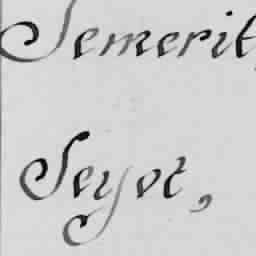 Semerit,
Seyot,